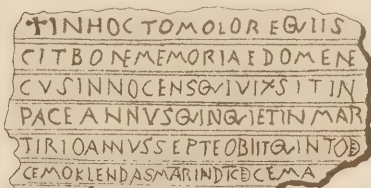 ✝INHOCTOMOLOREQVIIS
CITBONEMEMORIAEDOMENE
CVSINNOCENSQVIVIXSITIN
PACEANNVSQVINQVIETINMAR
TIRIOANNVSSEPTEOBIITQVINTODE
CEMOKLENDASMARINDICDECEMA